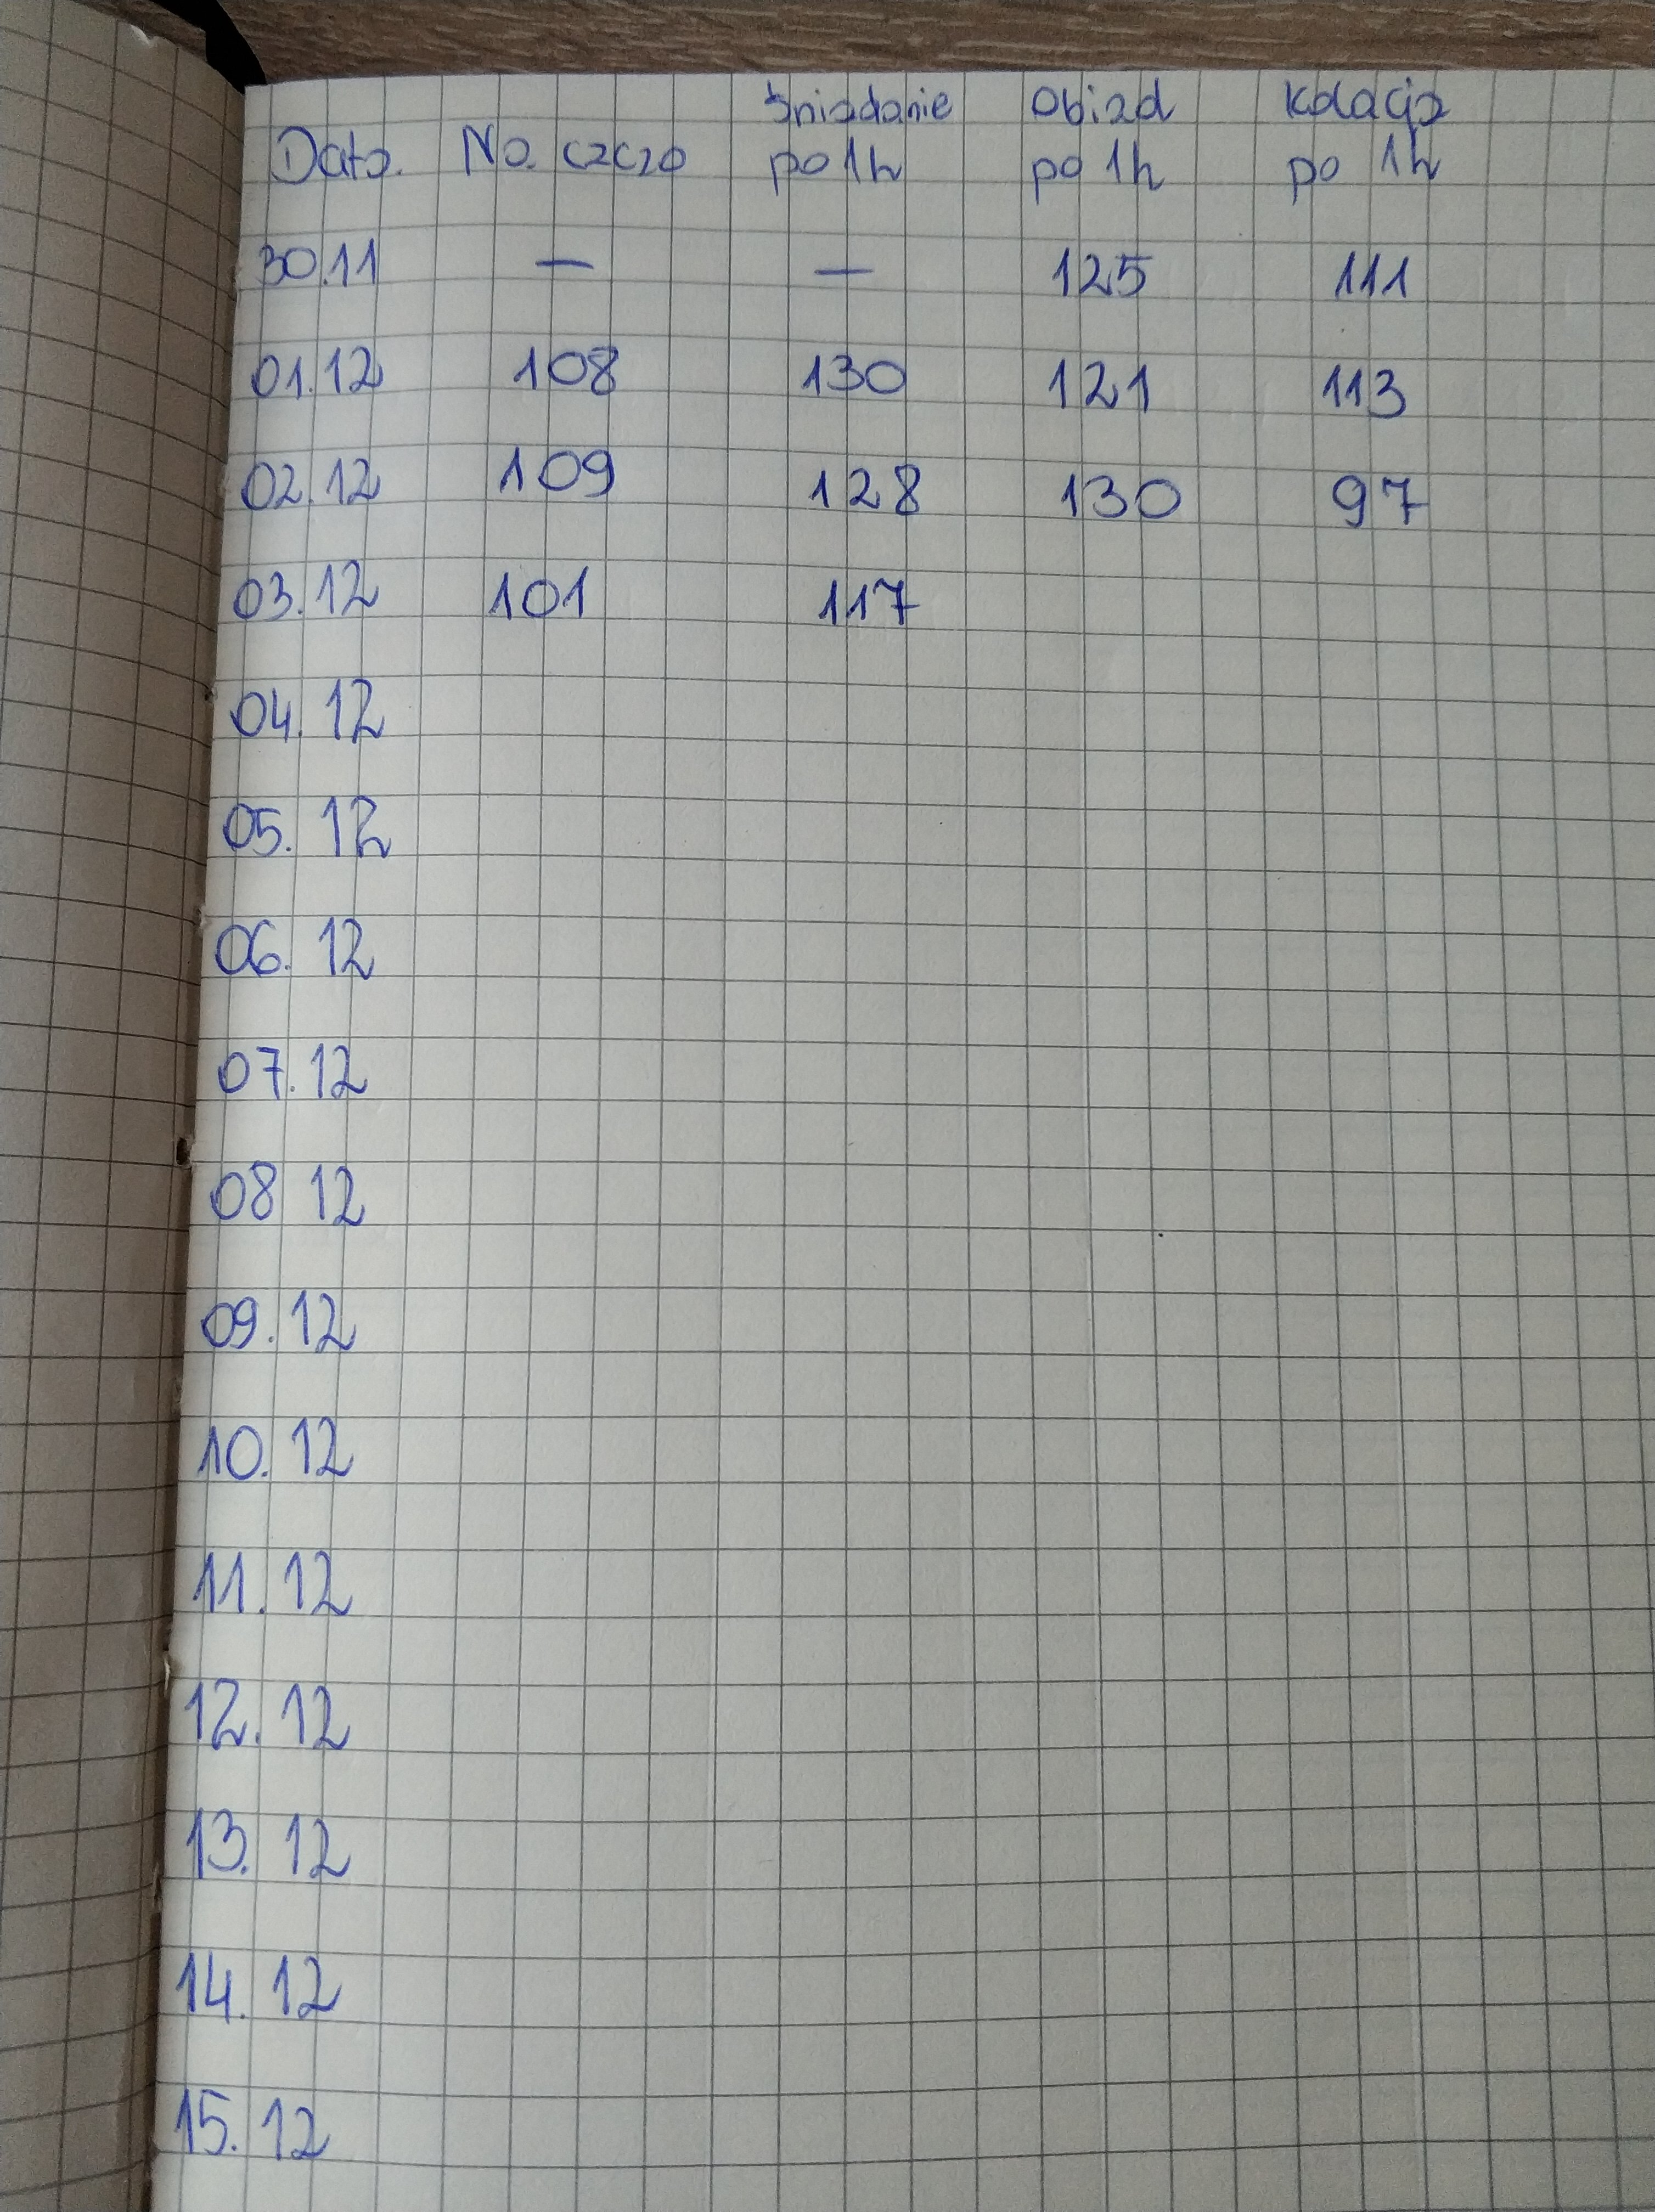 Śniadanie Obiad Kolacja
Data. Na. czczo po 1h po 1h po 1h
30.11 — — 125 111
01.12 108 130 121 113
02.12 109 128 130 97
03.12 101 117
04.12
05.12
06.12
07.12
08 12
09.12
10.12
11.12
12.12
13.12
14.12
15.12